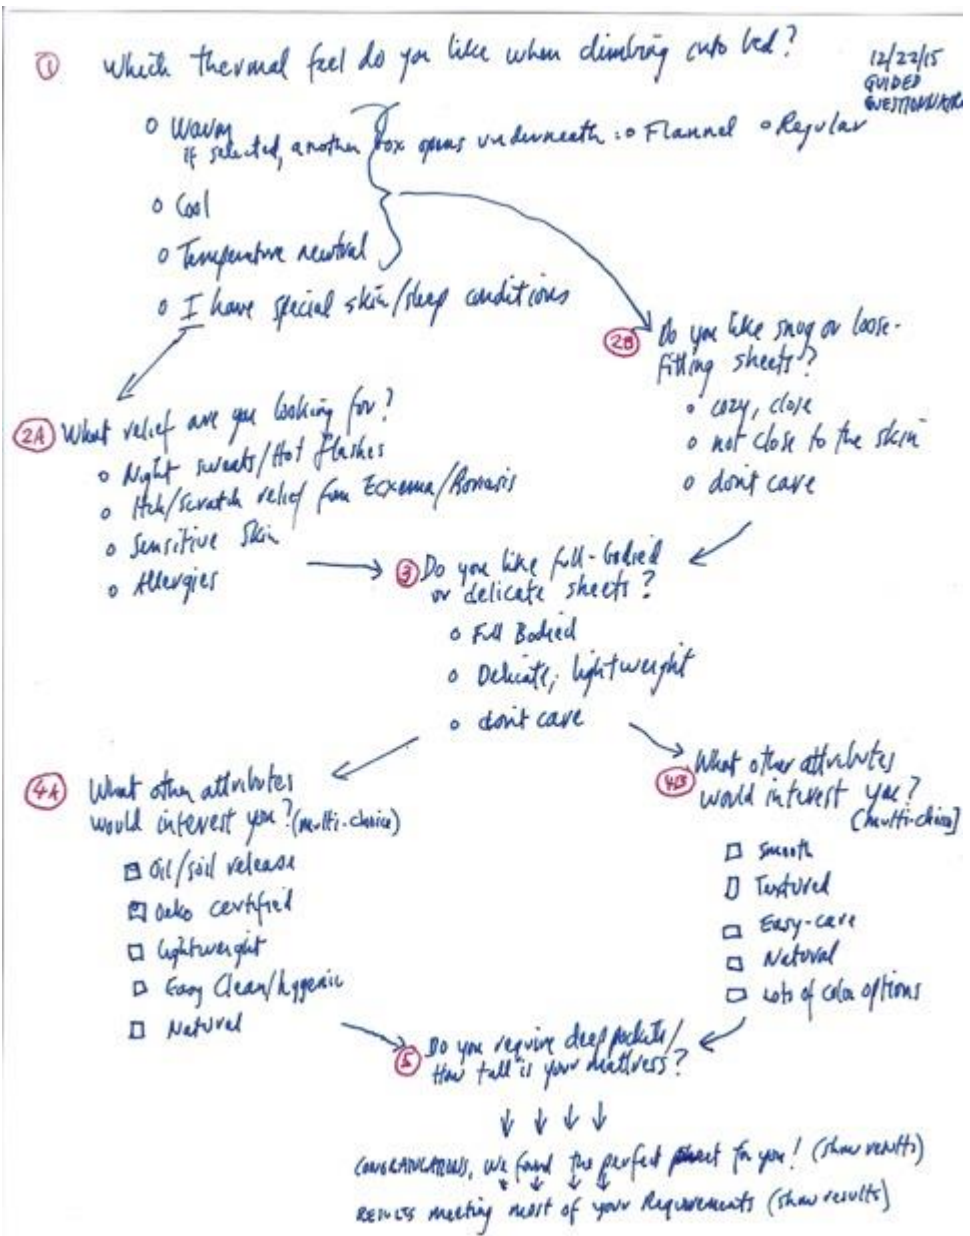 ① Which thermal feel do you like when climbing into bed?
12/22/15
GUIDED
QUESTIONNAIRE
Warm
if selected, another box opens underneath: o Flannel o Regular
Cool
Temperature neutral
I have special skin/sleep conditions
2B Do you like snug or loose-
fitting sheets?
cozy, close
not close to the skin
don't care
2A What relief are you looking for?
Night sweats/Hot flashes
Itch/scratch relief from Eczema/
Sensitive Skin
Allergies
③ Do you like full-bodied
or delicate sheets?
Full Bodied
Delicate, lightweight
don't care
4A What other attributes
would interest you? (multi-choice)
Oil/soil release
Oeko certified
lightweight
Easy Clean/hygenic
Natural
4B What other attributes
would interest you?
(multi-choice)
Smooth
Textured
Easy-care
Natural
Lots of color options
⑤ Do you require deep pockets/
How tall is your mattress?
we found the perfect for you! (show results)
RESULTS meeting most of your Requirements (show results)